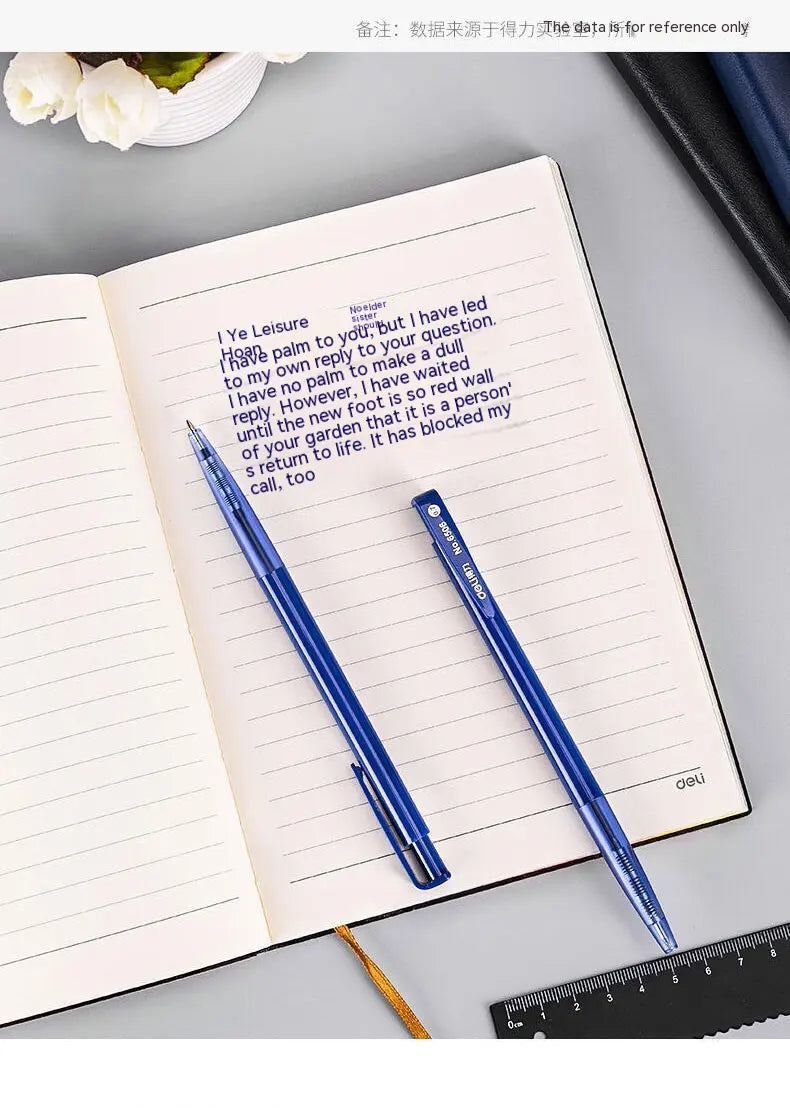 备注：数据来源于得力实验室，所
The data is for reference only
No elder
sister
should
I Ye Leisure
Hoan
I have palm to you, but I have led
to my own reply to your question.
I have no palm to make a dull
reply. However, I have waited
until the new foot is so red wall
of your garden that it is a person'
s return to life. It has blocked my
call, too
No.6506
deli
deli
0cm 1 2 3 4 5 6 7 8